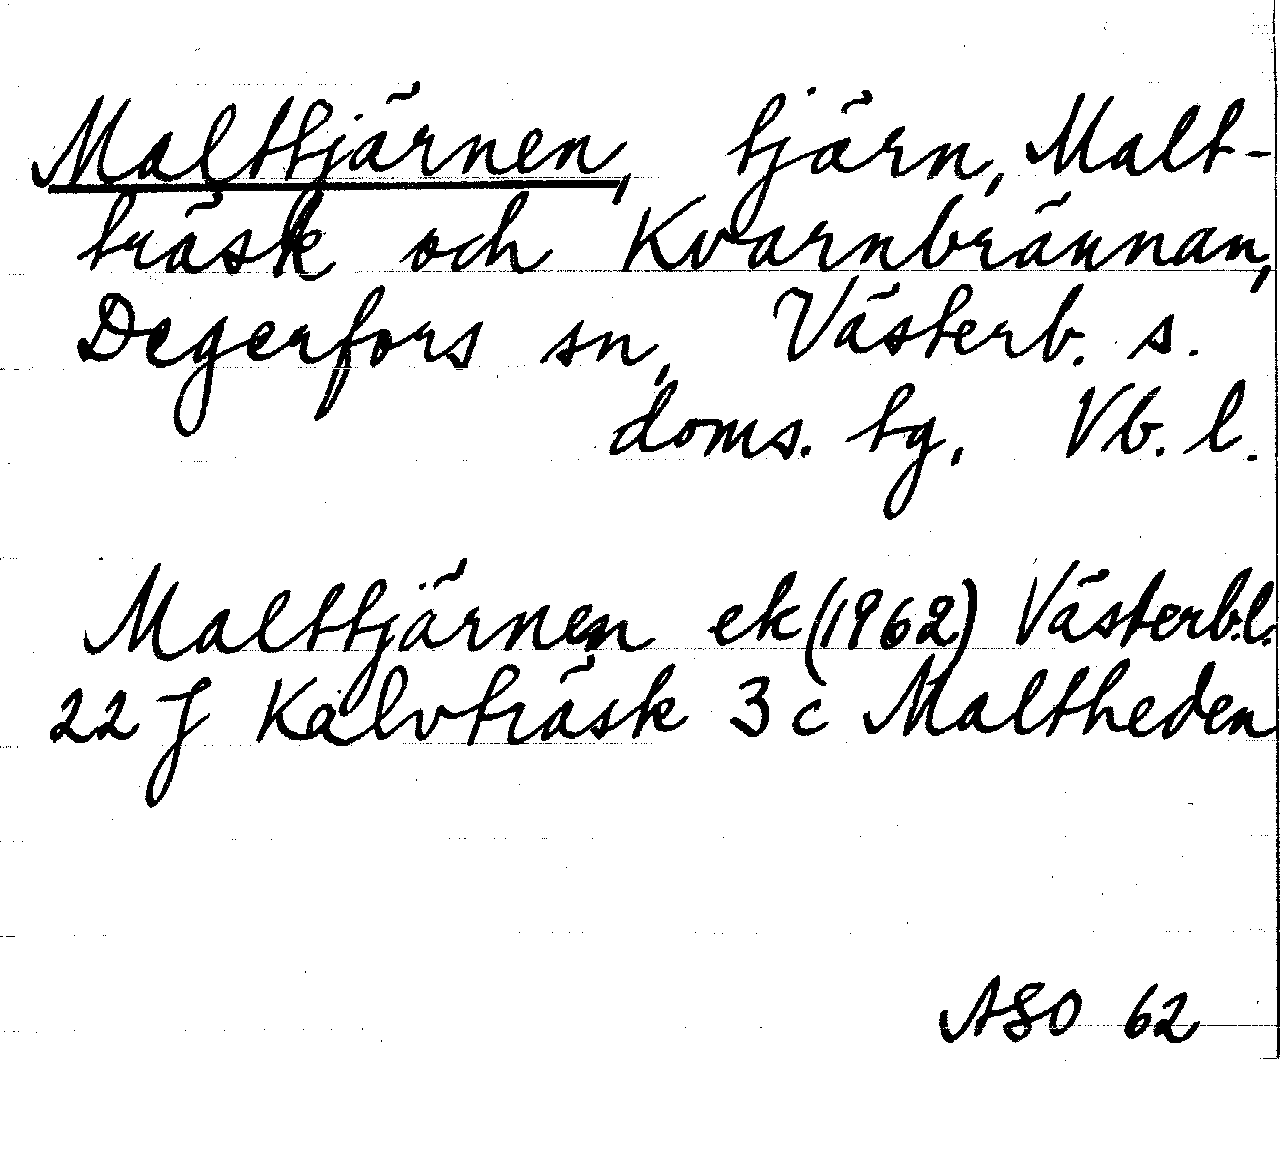 Malttjärnen, tjärn, Malt-
träsk och Kvarnbrännan,
Degerfors sn, Västerb. s.
doms. tg, Vb. l.
Malttjärnen ek (1962) Västerb.l.
22 J Kalvträsk 3 c Maltheden
ASO 62